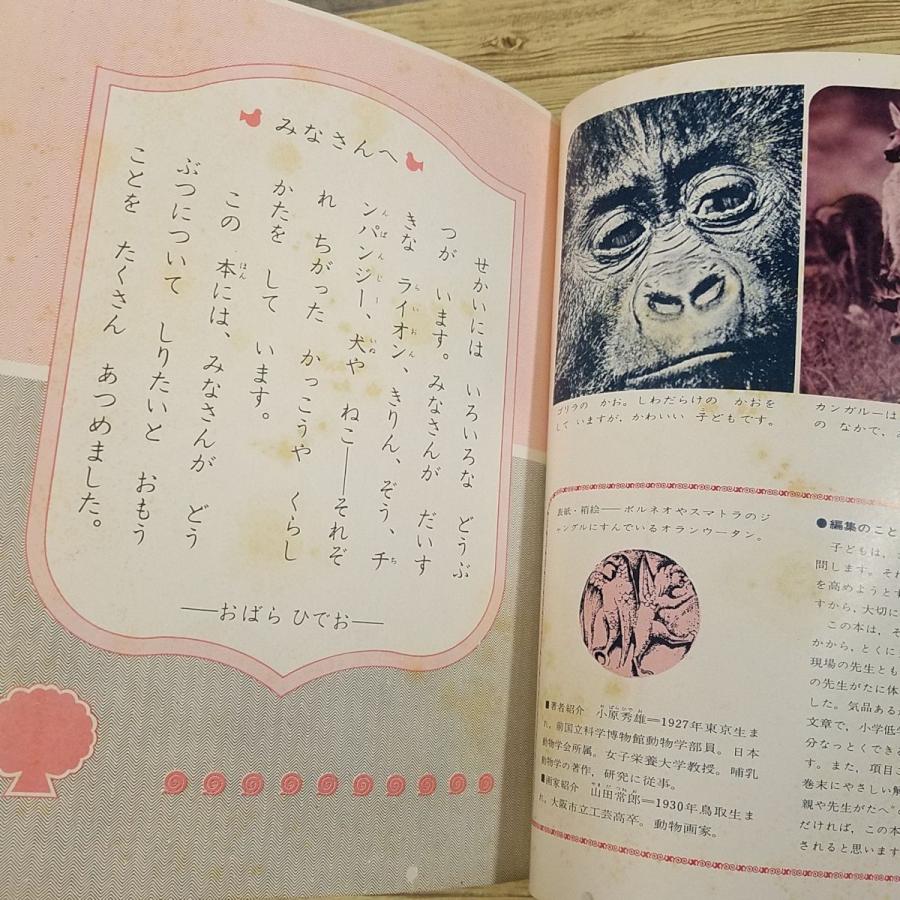 みなさんへ
せかいには いろいろな どうぶ
つが います。みなさんが だいす
きな ライオン、きりん、ぞう、チ
ンパンジー、犬や ねこ――それぞ
れ ちがった かっこうや くらし
かたを して います。
この 本には、みなさんが どう
ぶつについて しりたいと おもう
ことを たくさん あつめました。
――おばら ひでお――
ゴリラの かお。しわだらけの かおを
して いますが、かわいい 子どもです。
カンガルーは
の なかで、
表紙・箱絵――ボルネオやスマトラのジ
ャングルにすんでいるオランウータン。
■著者紹介 小原秀雄=1927年東京生ま
れ。前国立科学博物館動物学部員。日本
動物学会所属。女子栄養大学教授。哺乳
動物学の著作，研究に従事。
■画家紹介 山田常郎=1930年鳥取生ま
れ。大阪市立工芸高卒。動物画家。
●編集のこと
子どもは，
問します。それ
を高めようと
すから，大切に
この本は，そ
かから，とくに
現場の先生とも
の先生がたに体
した。気品ある
文章で，小学低学
分なっとくできる
す。また，項目
巻末にやさしい解
親や先生がたへ"
だければ，この本
されると思います